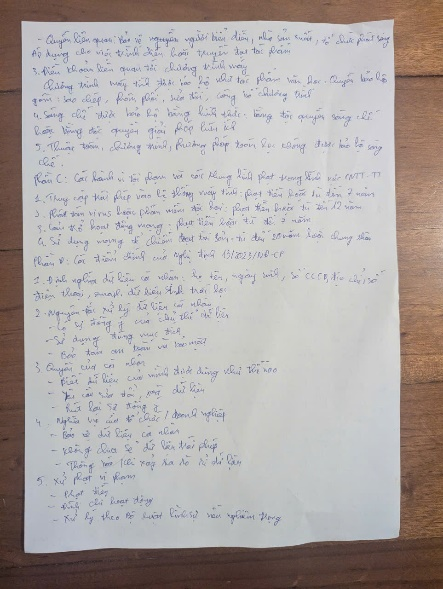 - Quyền liên quan: bảo vệ nguyên người biểu diễn, nhà sản xuất, tổ chức phát sóng
áp dụng cho việc trình diễn hoặc truyền đạt tác phẩm
3. Điều khoản liên quan tới chương trình máy
Chương trình máy tính được bảo hộ như tác phẩm văn học - Quyền bảo hộ
gồm: sao chép, phân phối, sửa đổi, công bố chương trình
4. Sáng chế được bảo hộ bằng hình thức - bằng tới quyền sáng chế
hoặc bằng độc quyền giải pháp hữu ích
5. Thuật toán, chương trình, phương pháp toán học không được bảo hộ sáng
chế.
Phần C: Các hành vi tội phạm và các khung hình phạt trong lĩnh vực CNTT-TT
1. Truy cập trái phép vào hệ thống máy tính: phạt tiền hoặc tù đến 7 năm
2. Phát tán virus hoặc phần mềm độc hại: phạt tiền hoặc tù đến 12 năm
3. Cản trở hoạt động mạng: phạt tiền hoặc tù tới 7 năm
4. Sử dụng mạng để chiếm đoạt tài sản: tù đến 20 năm hoặc chung thân
Phần D: Các điểm chính của nghị định 13/2023/NĐ-CP
1. Định nghĩa dữ liệu cá nhân: họ tên, ngày sinh, số CCCD, địa chỉ, số
điện thoại, email, dữ liệu sinh trắc học
2. Nguyên tắc xử lý dữ liệu cá nhân
- Có sự đồng ý của chủ thể dữ liệu
- Sử dụng đúng mục đích
- Bảo đảm an toàn và bảo mật
3. Quyền của cá nhân
- Biết dữ liệu của mình được dùng như thế nào
- Yêu cầu sửa đổi, xóa dữ liệu
- Rút lại sự đồng ý
4. Nghĩa vụ của tổ chức / doanh nghiệp
- Bảo vệ dữ liệu cá nhân
- Không chia sẻ dữ liệu trái phép
- Thông báo khi xảy ra rò rỉ dữ liệu
5. Xử phạt vi phạm
- Phạt tiền
- Đình chỉ hoạt động
- Xử lý theo Bộ luật hình sự nếu nghiêm trọng